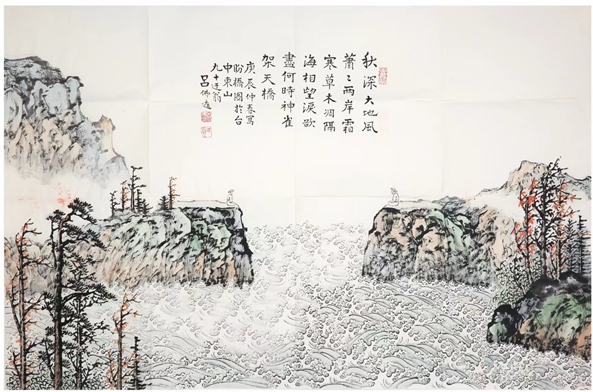 秋深大地風
蕭〻兩岸霜
寒草木凋隔
海相望淚欲
盡何時神雀
架天橋
庚辰仲春寫
盼橋圖於台
中東山
九十迂翁
呂佛庭